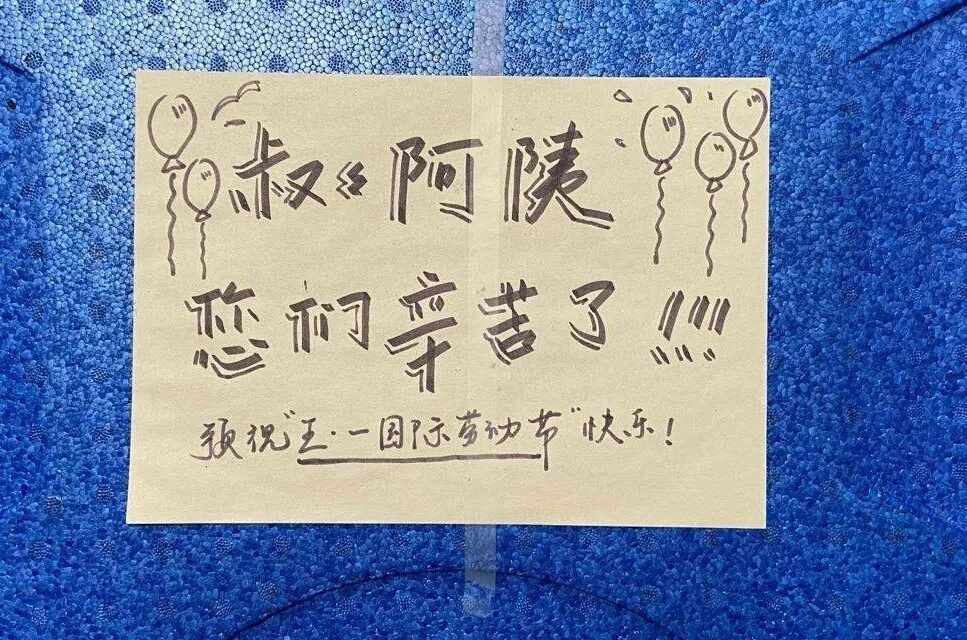 叔々阿姨
您们辛苦了!!!
预祝"五·一国际劳动节"快乐!